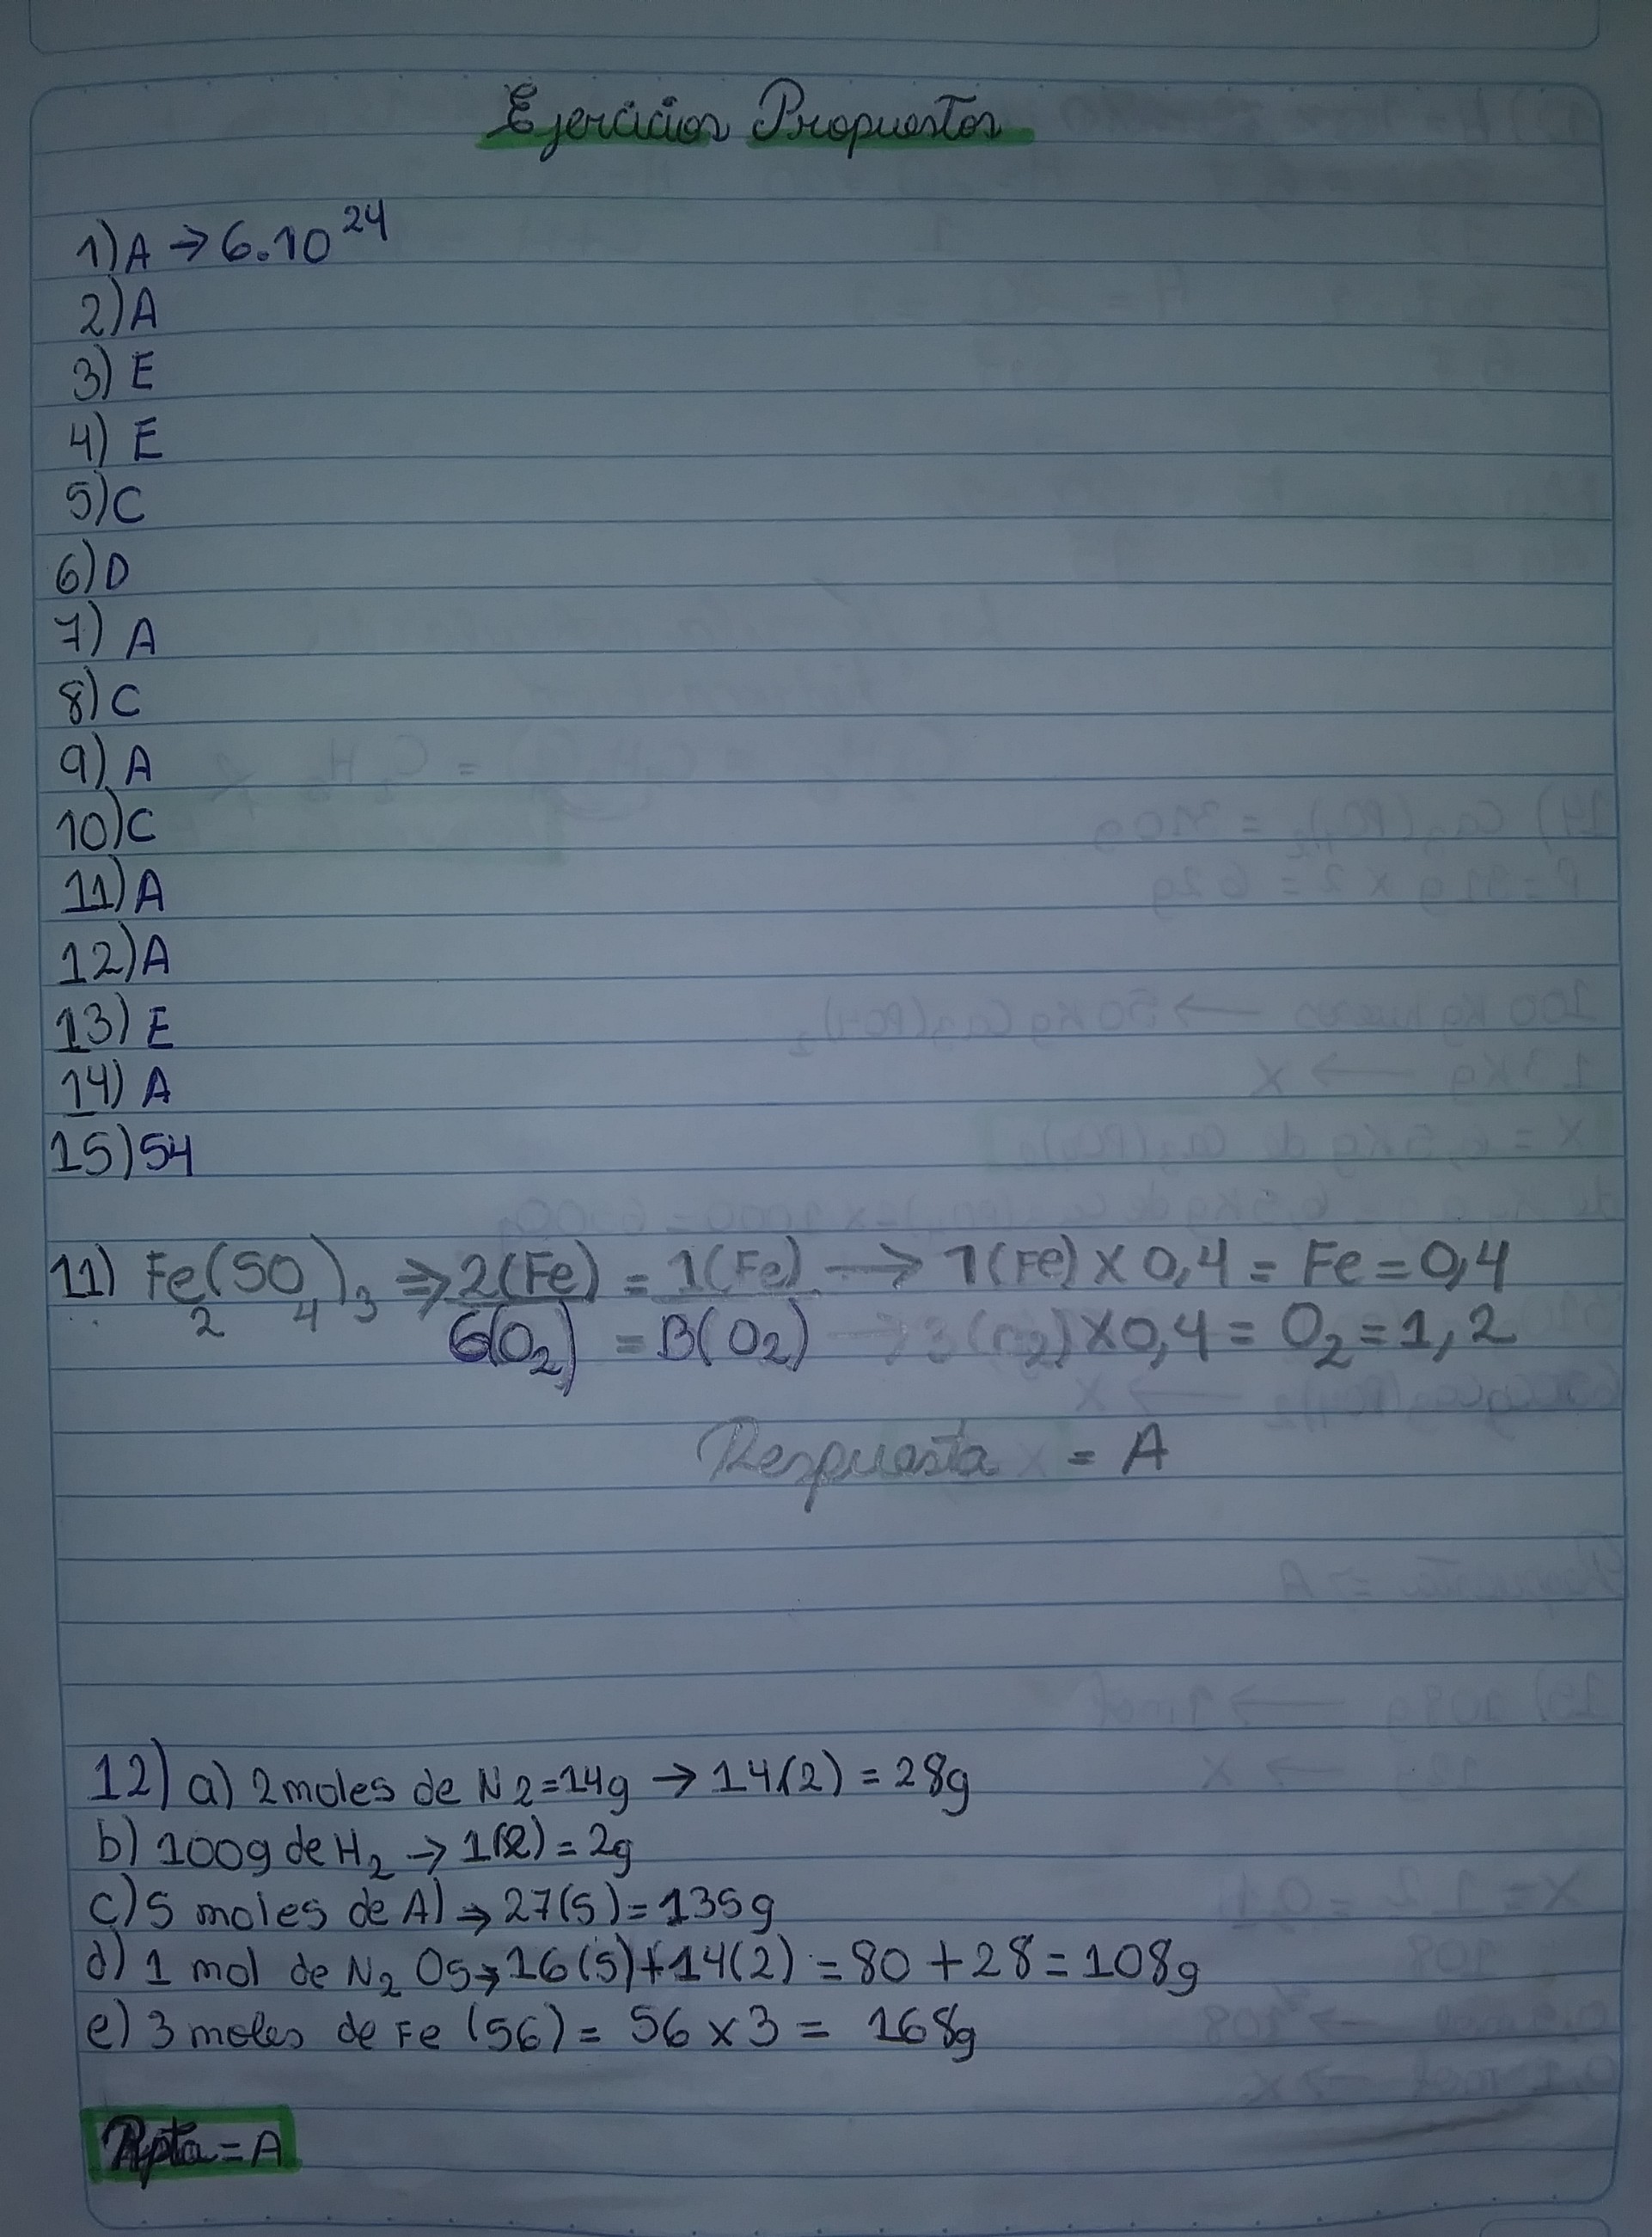 Ejercicios Propuestos
1) A → 6.10²⁴
2) A
3) E
4) E
5) C
6) D
7) A
8) C
9) A
10) C
11) A
12) A
13) E
14) A
15) 54
11) Fe₂(SO₄)₃ ⇒ 2(Fe) = 1(Fe) → 1(Fe) X 0,4 = Fe = 0,4
6(O₂) = 3(O₂) → 3(O₂) X 0,4 = O₂ = 1,2
Respuesta = A
12) a) 2 moles de N2 = 14g → 14(2) = 28g
b) 100g de H₂ → 1(2) = 2g
c) 5 moles de Al → 27(5) = 135g
d) 1 mol de N₂O5 → 16(5) + 14(2) = 80 + 28 = 108g
e) 3 moles de Fe (56) = 56 x 3 = 168g
Rpta = A